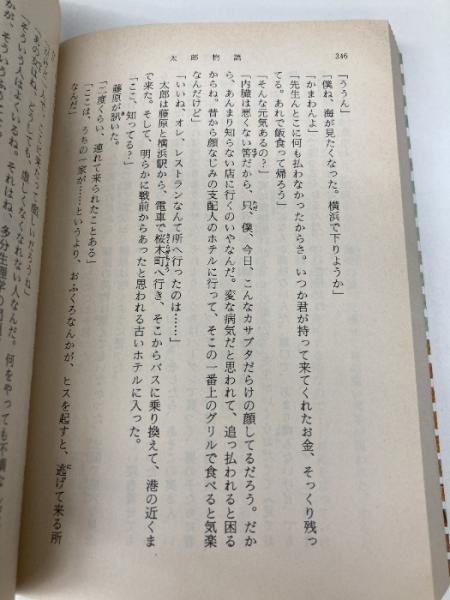 太郎物語
246
「ううん」
「僕ね、海が見たくなった。横浜で下りようか」
「かまわんよ」
「先生んとこに何も払わなかったからさ。いつか君が持って来てくれたお金、そっくり残っ
てる。あれで飯食って帰ろう」
「そんな元気あるの?」
「内臓は悪くない筈だから、只、僕、今日、こんなカサブタだらけの顔してるだろう。だか
ら、あんまり知らない店に行くのいやなんだ。変な病気だと思われて、追っ払われると困る
からね。昔から顔なじみの支配人のホテルに行って、そこの一番上のグリルで食べると気楽
なんだけど」
「いいね、オレ、レストランなんて所へ行ったのは……」
太郎は藤原と横浜駅から、電車で桜木町へ行き、そこからバスに乗り換えて、港の近くま
で来た。そして、明らかに戦前からあったと思われる古いホテルに入った。
「ここ、知ってる?」
藤原が訊いた。
「二度くらい、連れて来られたことある」
「ここは、うちの一家が……というより、おふくろなんかが、ヒスを起すと、逃げて来る所
なんだ」